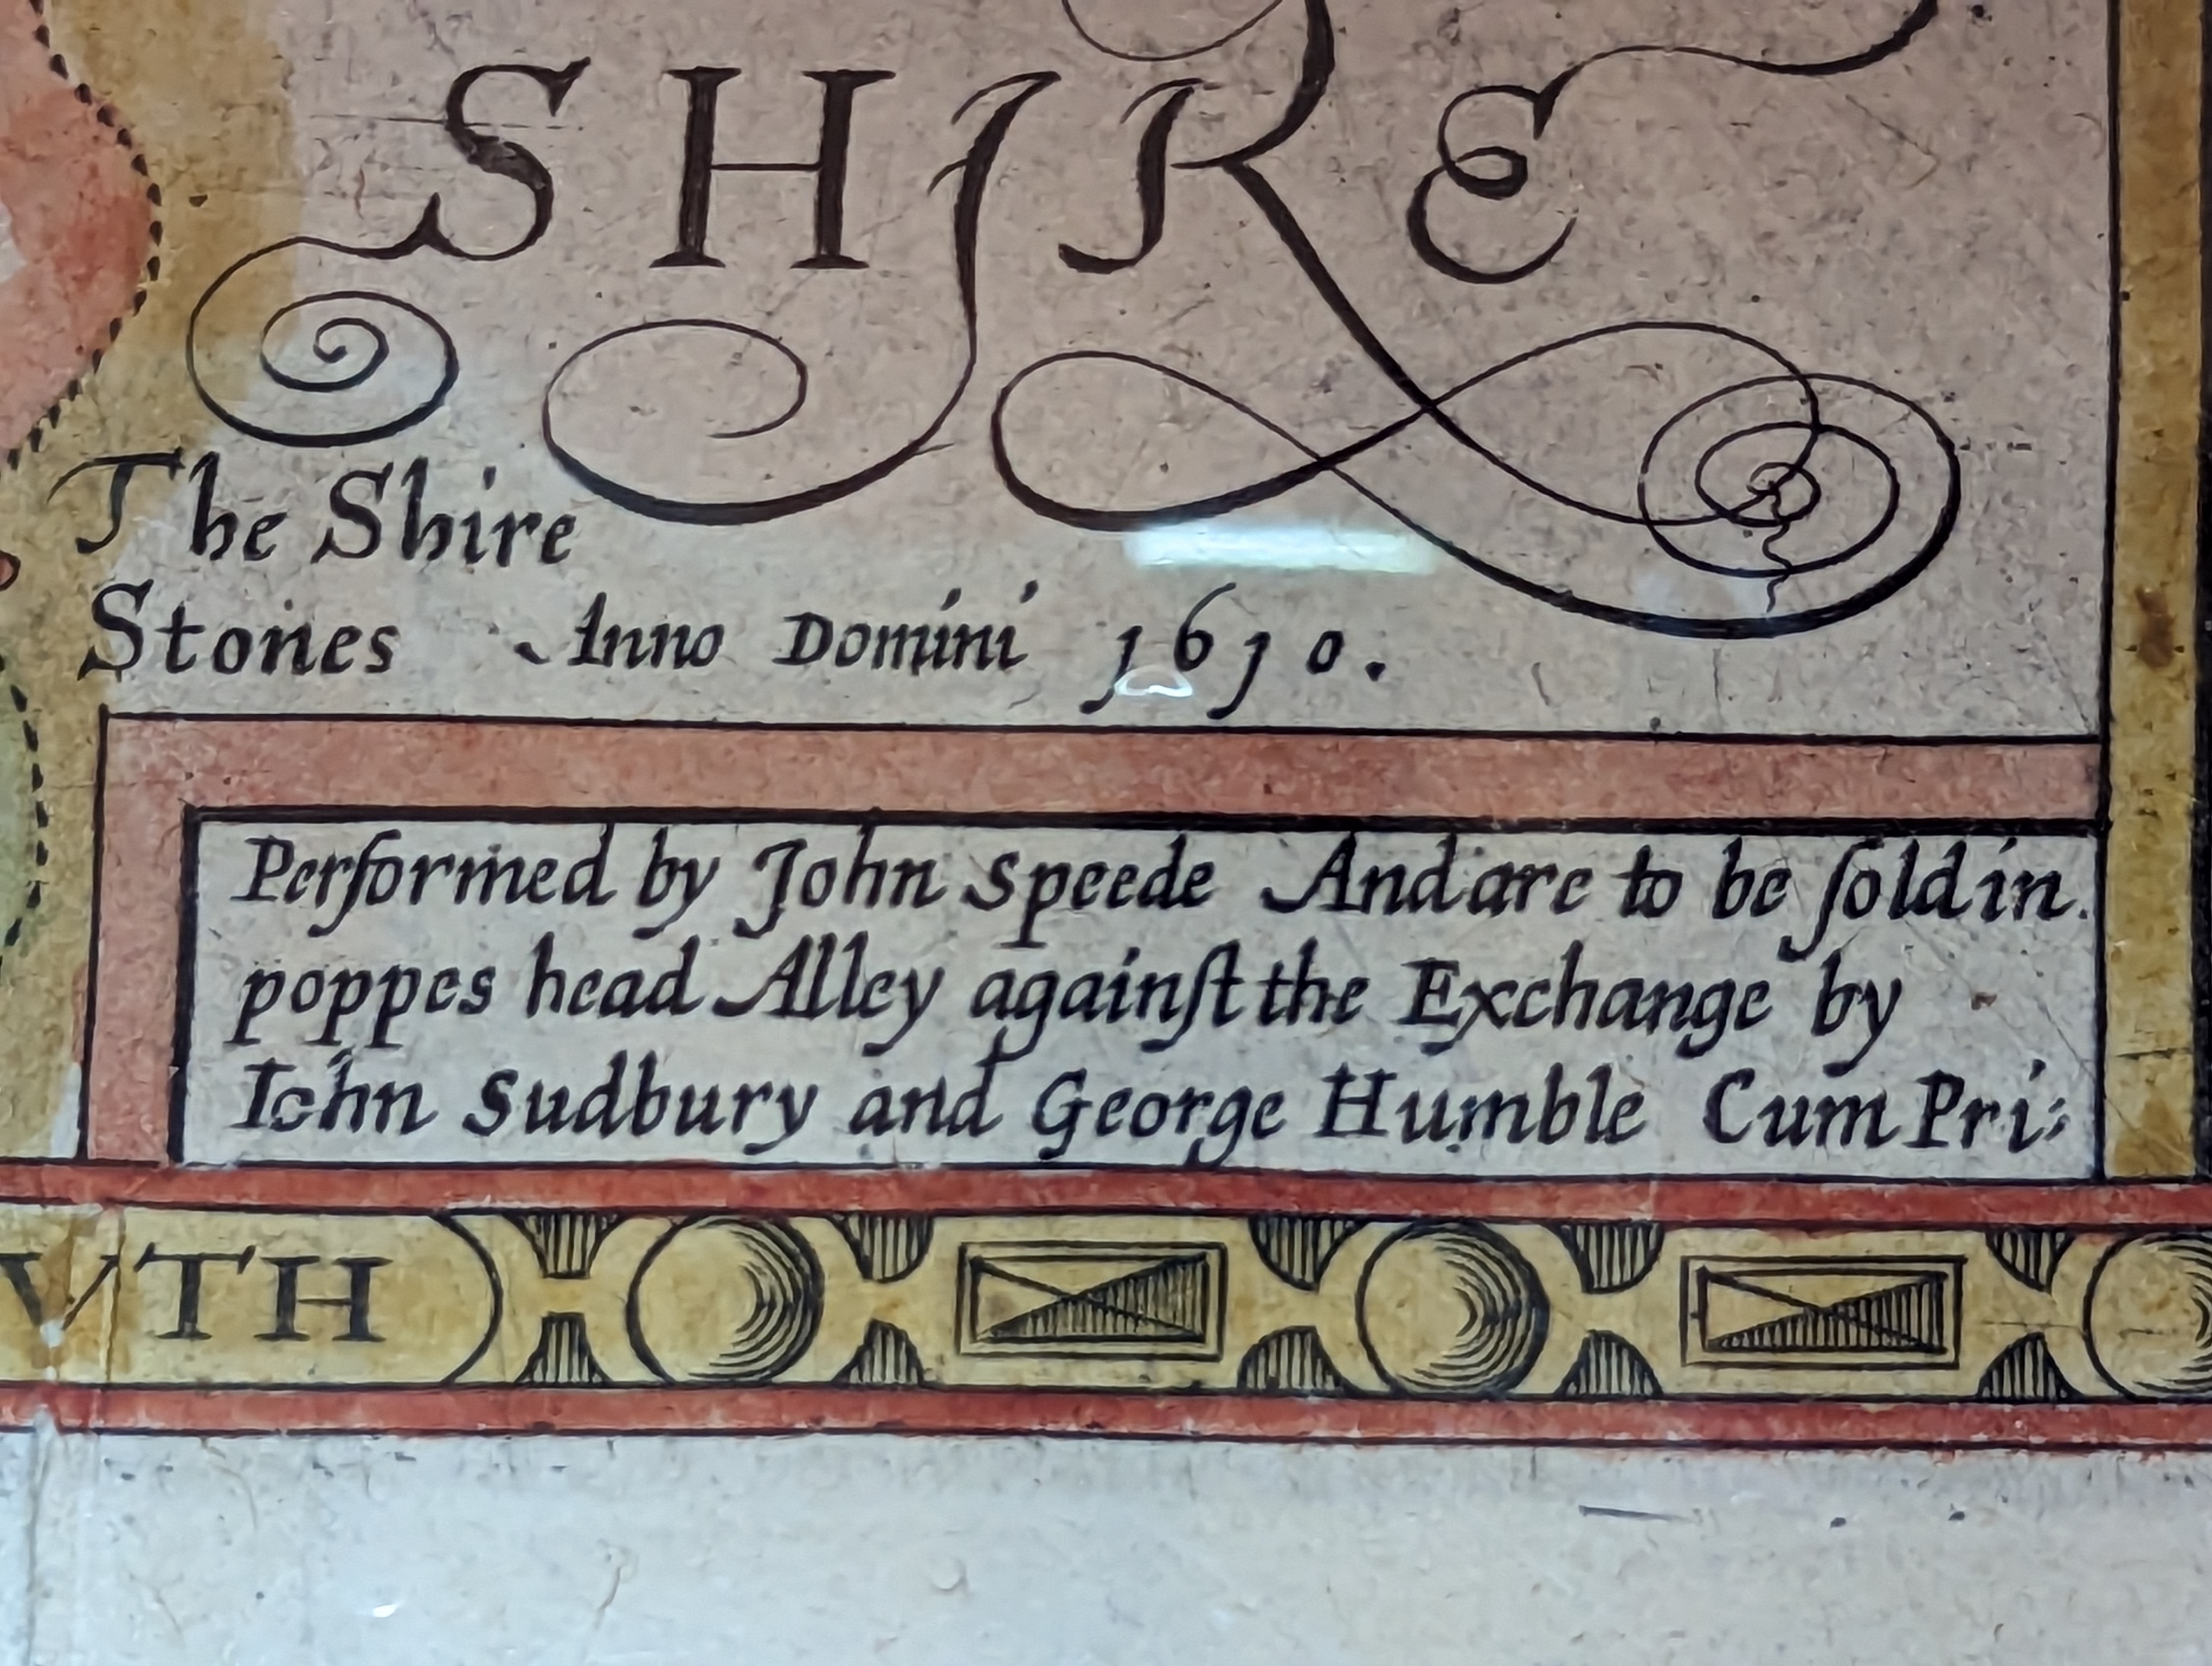 SHIRE
The Shire
Stones Anno Domini 1610.
Performed by John Speede And are to be ſold in.
poppes head Alley againſt the Exchange by
Iohn Sudbury and George Humble Cum Pri:
VTH